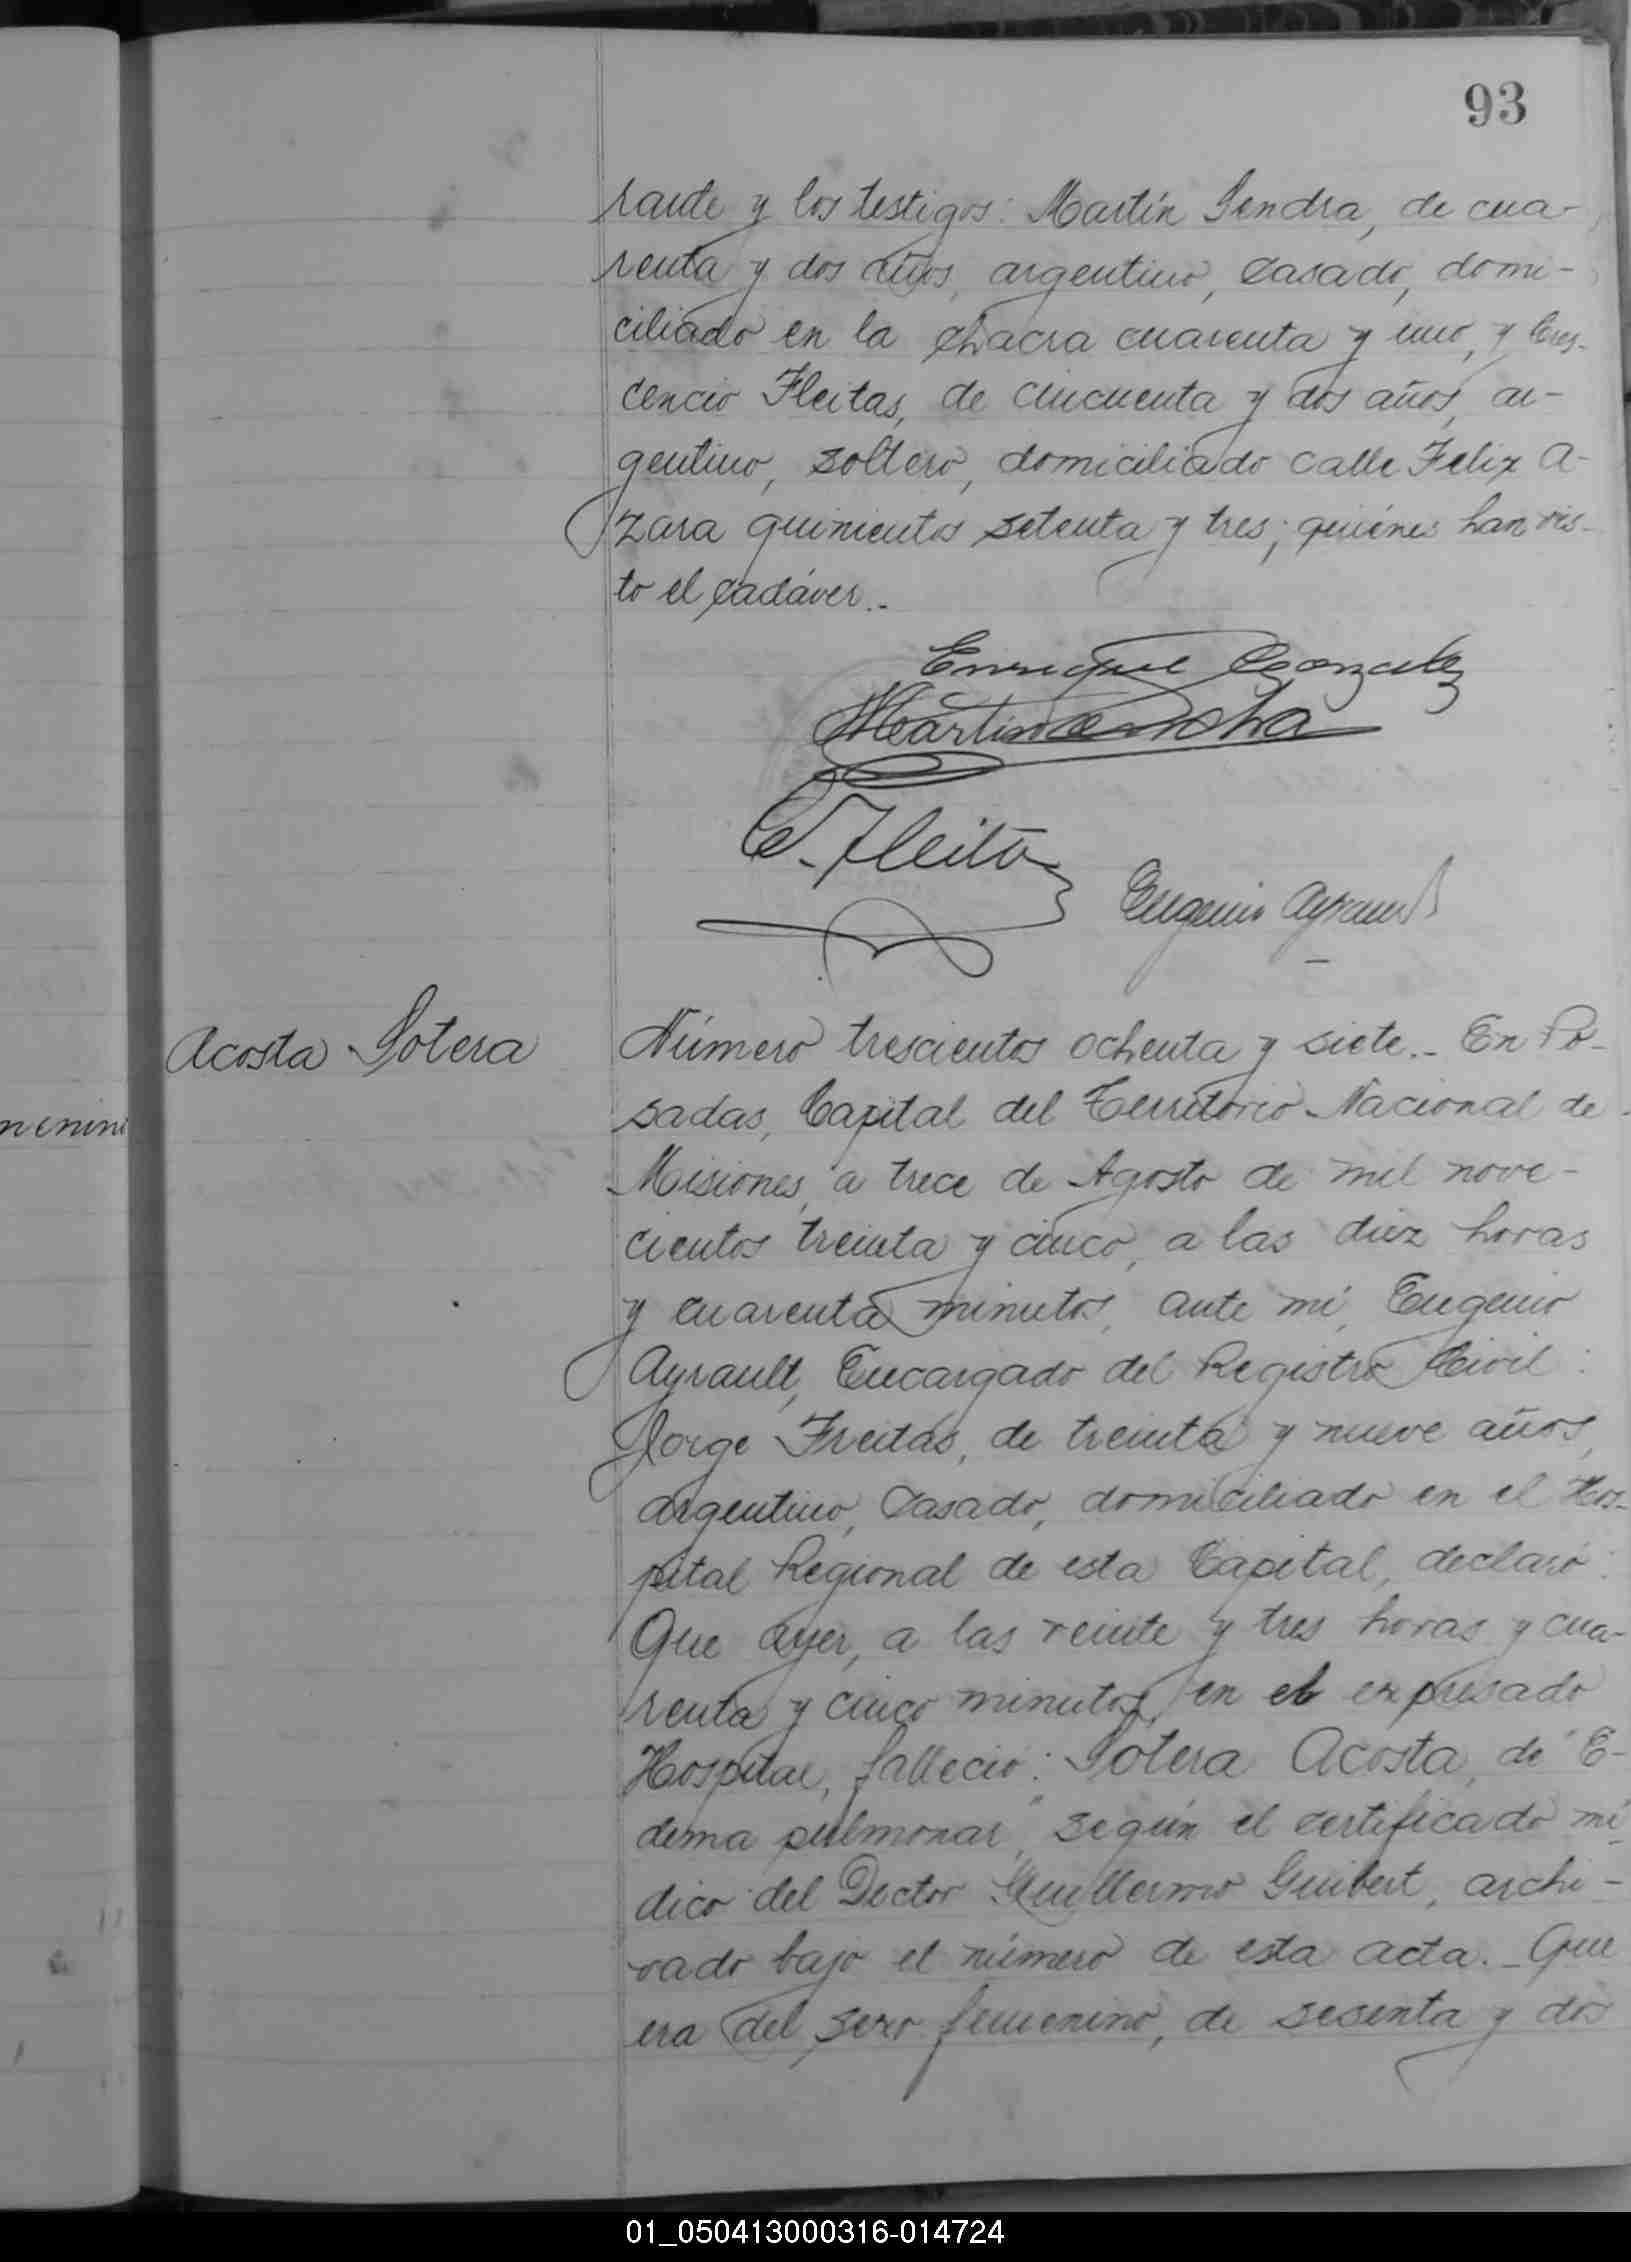 93
rante y los testigos: Martín Sendra, de cua-
renta y dos años, argentino, casado, domi-
ciliado en la chacra cuarenta y uno, y Cres-
cencio Fleitas, de cincuenta y dos años, ar-
gentino, soltero, domiciliado calle Felix A-
zara quinientos setenta y tres; quiénes han vis-
to el cadáver.-
Enrique Gonzalez
Martin Sendra
C. Fleitas
Eugenio Ayrault
Acosta Sotera
Número trescientos ochenta y siete.- En Po-
sadas, Capital del Territorio Nacional de
Misiones, a trece de Agosto de mil nove-
cientos treinta y cinco, a las diez horas
y cuarenta minutos, ante mí, Eugenio
Ayrault, Encargado del Registro Civil:
Jorge Freitas, de treinta y nueve años,
argentino, casado, domiciliado en el Hos-
pital Regional de esta Capital, declaró:
Que ayer, a las veinte y tres horas y cua-
renta y cinco minutos, en el expresado
Hospital, falleció: Sotera Acosta, de "E-
dema pulmonar", según el certificado mé-
dico del Doctor Guillermo Guibert, archi-
vado bajo el número de esta acta.- Que
era del sexo femenino, de sesenta y dos
01_050413000316-014724